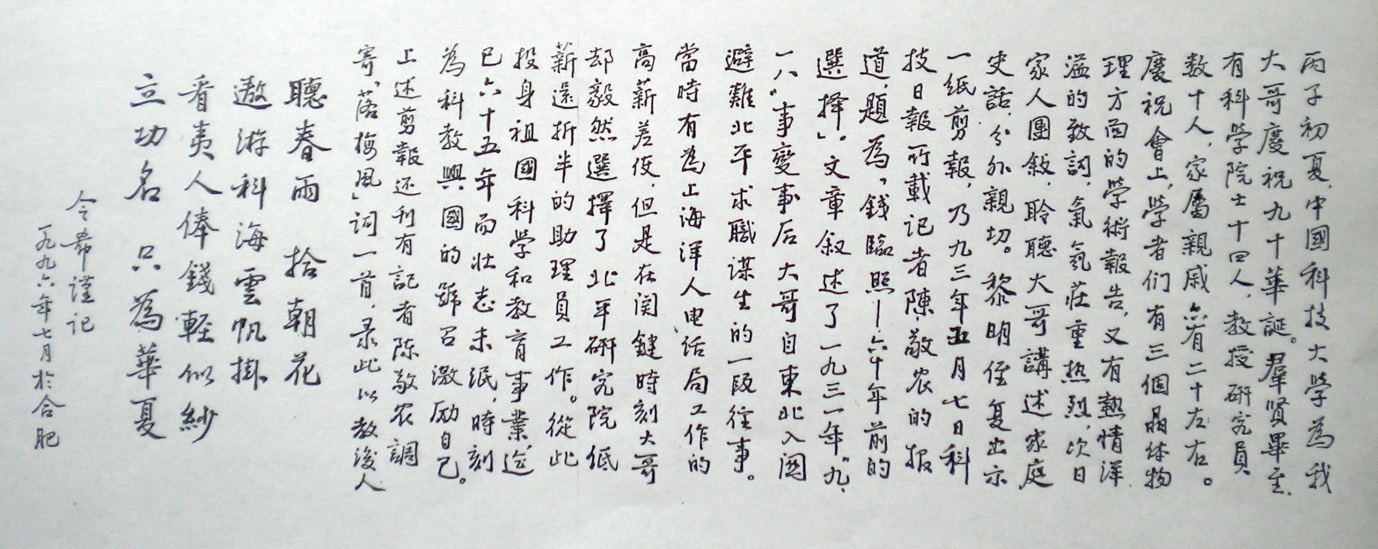 丙子初夏，中國科技大学為我
大哥慶祝九十華誕。羣賢畢至，
有科學院士十四人，教授研究員
数十人，家屬親戚亦有二十左右。
慶祝會上，学者们有三個晶体物
理方面的学術報告，又有熱情洋
溢的致詞，氣氛莊重热烈，次日
家人團敘，聆聽大哥講述家庭
史話，分外親切。黎明侄复出示
一纸剪報，乃九三年五月七日科
技日報所載记者陳敬农的报
道，題為「錢臨照—六十年前的
選择」。文章叙述了一九三一年“九、
一八”事变事后大哥自東北入関
避難北平求職谋生的一段往事。
當時有為上海洋人电话局工作的
高薪差使，但是在関鍵時刻大哥
却毅然選擇了北平研究院低
薪遠折半的助理員工作。從此
投身祖國科学和教育事業迄
已六十五年而壮志未泯，時刻
為科教興國的號召激励自己。
上述剪報还刊有記者陈敬农調
寄「落梅風」词一首，录此以教後人
聽春雨　拾朝花
遨游科海雲帆掛
看夷人俸錢輕似紗
立功名　只為華夏
令希谨记
一九九六年七月於合肥